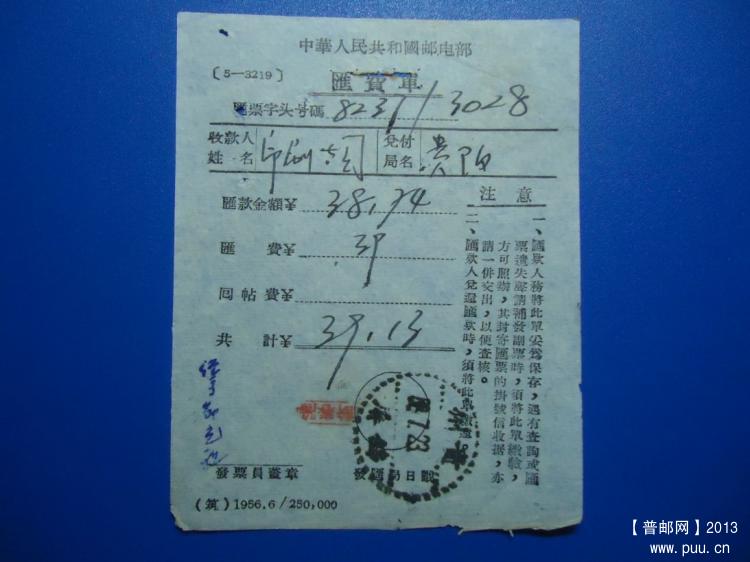 中華人民共和國邮电部
〔5—3219〕
匯費單
匯票字头号碼 8231/3028
收款人姓名
兌付局名 貴阳
匯款金額 38.74
匯費 39
回帖費
共計 39.13
注意
一、匯款人務將此單妥爲保存，遇有查詢或匯
票遺失應請補發副票時，須將此單繳驗，
方可照辦，其封寄匯票的掛號信收据，亦
請一併交出，以便查核。
二、匯款人兌还匯款時，須將此單繳還。
發票員蓋章
發匯局日戳
(筑) 1956.6/250,000
【普邮网】2013
www.puu.cn